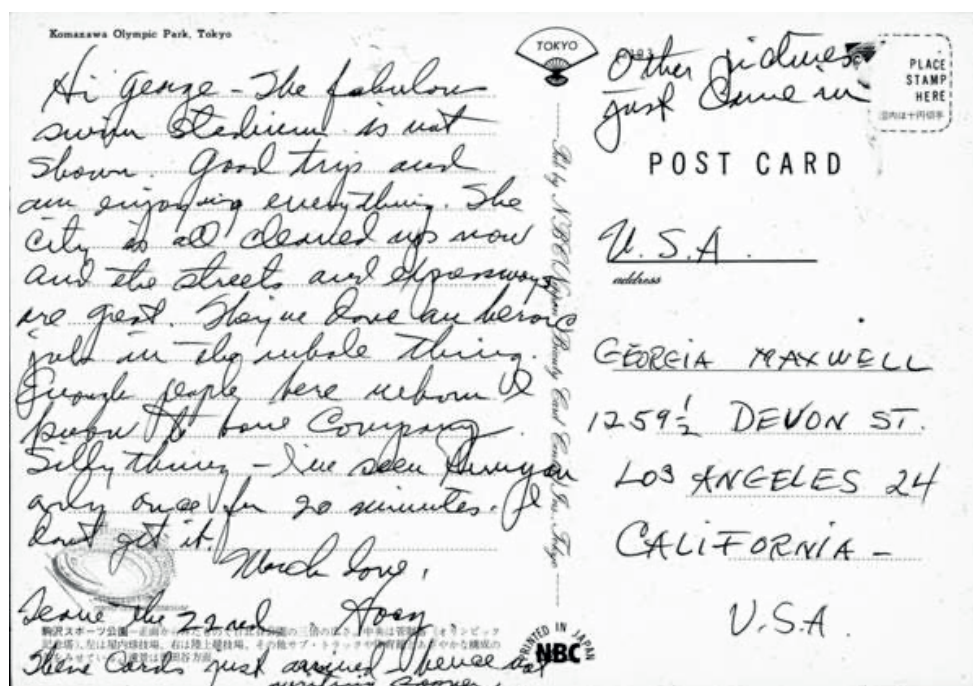 Komazawa Olympic Park, Tokyo
Hi George - The fabulous
swim stadium is not
shown. Good trip and
am enjoying everything. The
city is all cleaned up now
and the streets and expressways
are great. They've done an heroic
job in the whole thing.
Enough people here whom I
know to have company.
Silly thing - I've seen
only once for 20 minutes. I
dont get it.
Much love,
Leave the 22nd.
These cards just arrived hence not
writing sooner.
駒沢スポーツ公園
TOKYO
Other pictures
just came in
PLACE
STAMP
HERE
POST CARD
U.S.A.
address
GEORGIA MAXWELL
1259½ DEVON ST.
LOS ANGELES 24
CALIFORNIA -
U.S.A.
PRINTED IN JAPAN
NBC